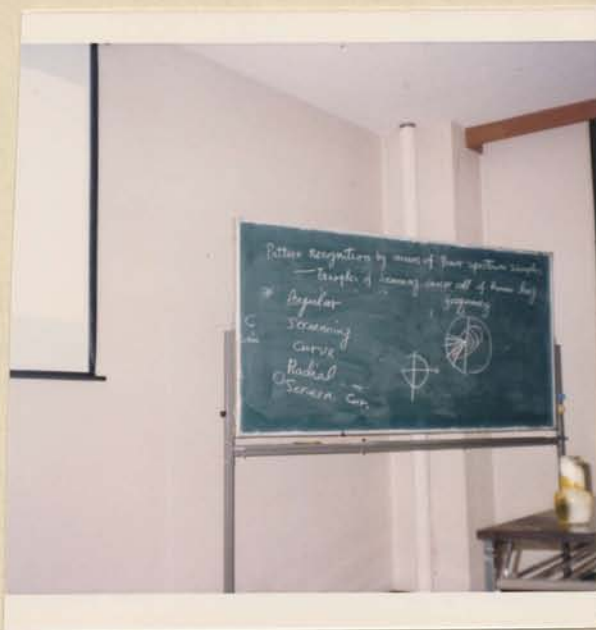 Pattern Recognition by means of Power spectrum sampling
— Examples of cancer cell of human
Angular
C screening
curve
Radial
Screen Cur.